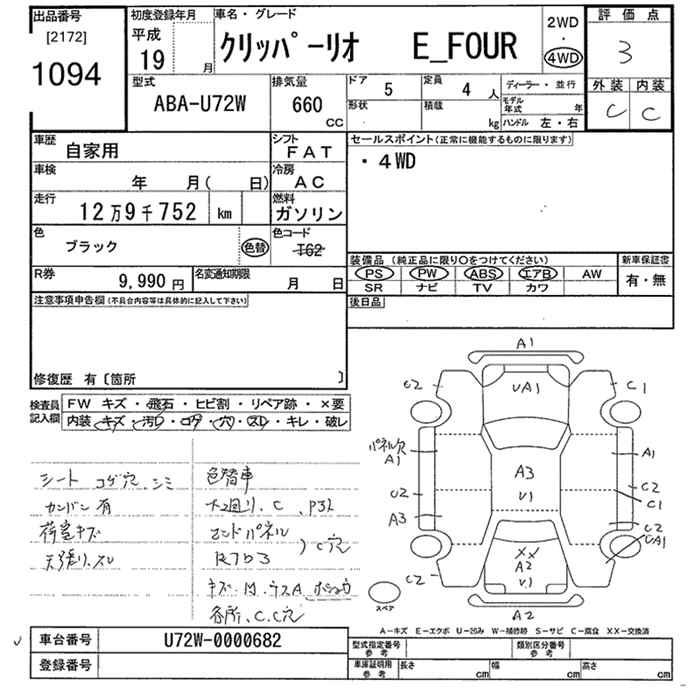 出品番号
[2172]
1094
初度登録年月
平成
19 年 月
車名・グレード
クリッパーリオ E_FOUR
2WD
・
4WD
評価点
3
外装 内装
C C
型式
ABA-U72W
排気量
660
CC
ドア
5
定員
4 人
形状
積載
kg
ディーラー・並行
モデル
年式 年
ハンドル 左・右
車歴
自家用
シフト
FAT
車検
年 月( 日)
冷房
AC
走行
12万9千752 km
燃料
ガソリン
色
ブラック
色替
色コード
T62
R券
9,990 円
名変通知期限
月 日
セールスポイント(正常に機能するものに限ります)
・4WD
装備品 (純正品に限り○をつけてください)
PS PW ABS エアB AW
SR ナビ TV カワ
新車保証書
有・無
後日品
注意事項申告欄(不具合内容等は具体的に記入して下さい)
修復歴 有〔箇所 〕
検査員
記入欄
FW キズ・飛石・ヒビ割・リペア跡・×要
内装・キズ・汚レ・コゲ・穴・スレ・キレ・破レ
シート コゲ穴、シミ
カンバン有
荷室キズ
天張り、スレ
色替車
エンドパネル
C穴
各所、C、C穴
A1
C2
UA1
C1
パネル穴
A1
A1
A3
U1
U2
C2
C1
A3
C2
UA1
XX
A2
U1
C2
A2
スペア
A-キズ E-エクボ U-凹み W-補修跡 S-サビ C-腐食 XX-交換済
車台番号
U72W-0000682
登録番号
型式指定番号
参考
類別区分番号
参考
車庫証明用
参考
長さ cm
幅 cm
高さ cm